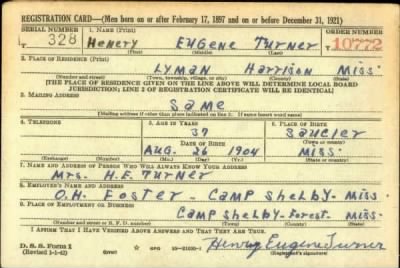 REGISTRATION CARD—(Men born on or after February 17, 1897 and on or before December 31, 1921)
SERIAL NUMBER 1. NAME (Print) ORDER NUMBER
T 328 Henery Eugene Turner 10772
(First) (Middle) (Last)
2. PLACE OF RESIDENCE (Print)
Lyman Harrison Miss.
(Number and street) (Town, township, village, or city) (County) (State)
[THE PLACE OF RESIDENCE GIVEN ON THE LINE ABOVE WILL DETERMINE LOCAL BOARD
JURISDICTION; LINE 2 OF REGISTRATION CERTIFICATE WILL BE IDENTICAL]
3. MAILING ADDRESS
Same
[Mailing address if other than place indicated on line 2. If same insert word same]
4. TELEPHONE 5. AGE IN YEARS 6. PLACE OF BIRTH
37 Saucier
DATE OF BIRTH (Town or county)
Aug. 26 1904 Miss.
(Exchange) (Number) (Mo.) (Day) (Yr.) (State or country)
7. NAME AND ADDRESS OF PERSON WHO WILL ALWAYS KNOW YOUR ADDRESS
Mrs. H.E. Turner
8. EMPLOYER'S NAME AND ADDRESS
O.H. Foster - Camp Shelby - Miss
9. PLACE OF EMPLOYMENT OR BUSINESS
Camp Shelby - Forest. Miss.
(Number and street or R. F. D. number) (Town) (County) (State)
I AFFIRM THAT I HAVE VERIFIED ABOVE ANSWERS AND THAT THEY ARE TRUE.
D. S. S. Form 1
(Revised 1-1-42) GPO 16-21630-1 Henry Eugene Turner
(Registrant's signature)